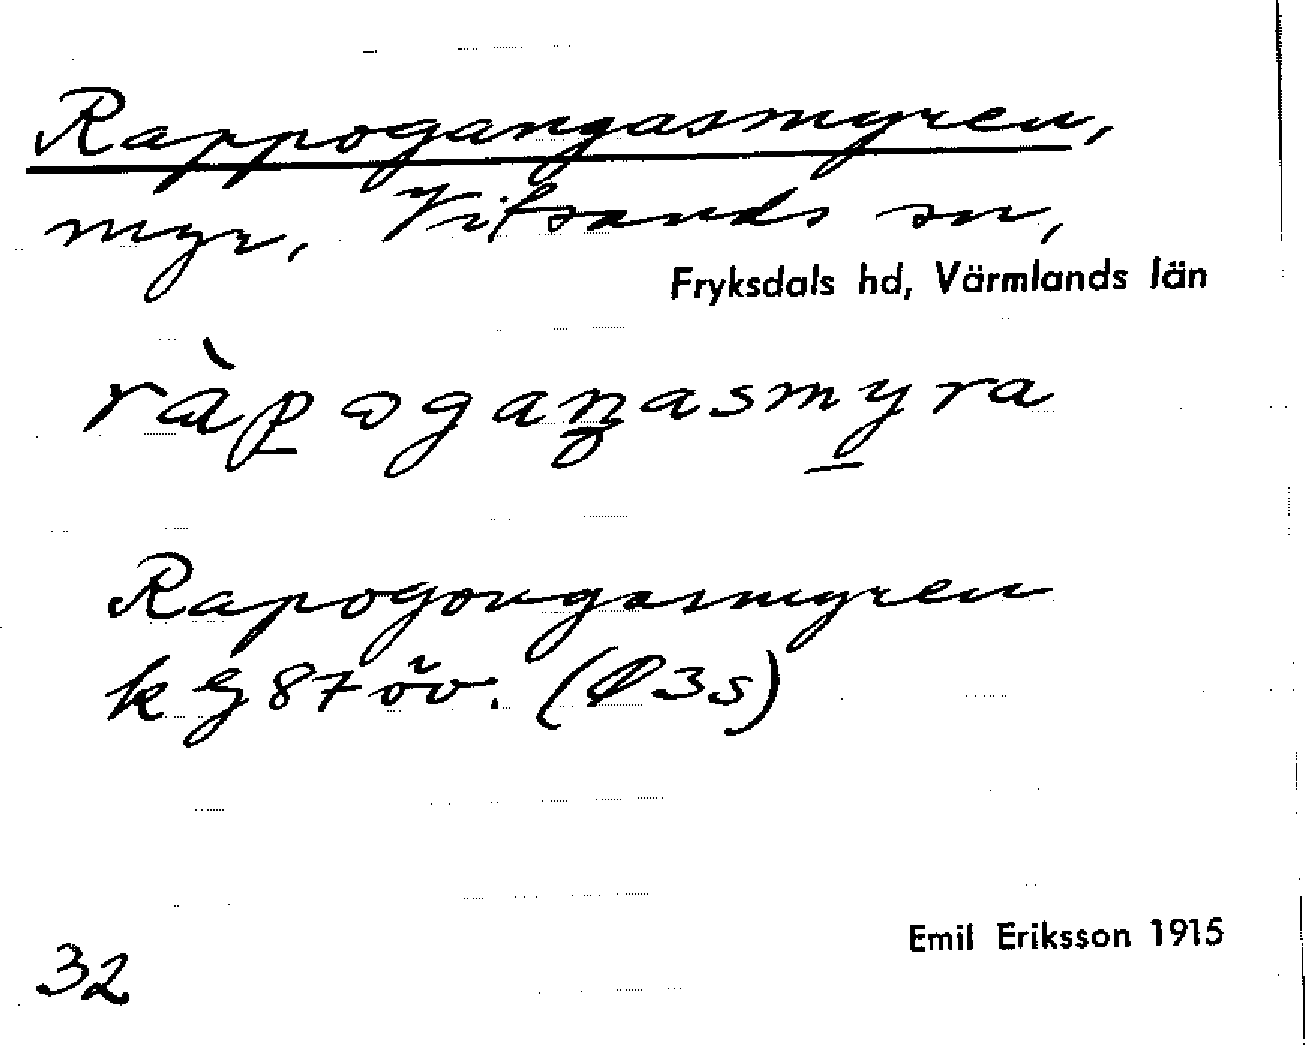 Rappogangasmyren,
myr, Vitsands sn,
Fryksdals hd, Värmlands län
ràpogaŋasmyra
Rapogongasmyren
kg 87 öv. (Ø3s)
32
Emil Eriksson 1915